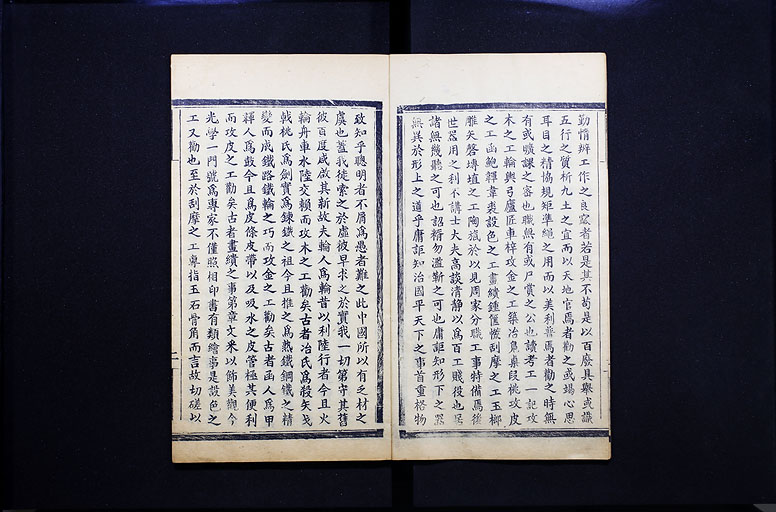 勤惰辨工作之良窳者若是其不苟是以百廢具舉或識
五行之質析九土之宜而以天地官焉者勸之或竭心思
耳目之精協規矩準繩之用而以美利普焉者勸之時無
有或曠課之審也職無有或尸賞之公也讀考工一記攻
木之工輪輿弓廬匠車梓攻金之工築冶鳧㮚段桃攻皮
之工函鮑韗韋裘設色之工畫繢鍾筐㡛刮摩之工玉楖
雕矢磬摶埴之工陶瓬於以見周家分職工事特備焉後
世器用之利不講士大夫高談清静以爲百工賤役也居
諸無幾聽之可也詔糈勿濫靳之可也庸詎知形下之器
無異於形上之道乎庸詎知治國平天下之事首重格物
致知乎聰明者不屑爲愚者難之此中國所以有乏材之
虞也蓋我徒索之於虛彼早求之於實我一切第守其舊
彼百度咸啟其新故夫輪人爲輪昔以利陸行者今且火
輪舟車水陸交賴而攻木之工勸矣古者冶氏爲殺矢戈
戟桃氏爲劍實爲鍊鐵之祖今且推之爲熟鐵鋼鐵之精
變而成鐵路鐵輪之巧而攻金之工勸矣古者函人爲甲
韗人爲鼓今且爲皮條皮帶以及吸水之皮管極其便利
而攻皮之工勸矣古者畫繢之事第章文采以飾美觀今
光學一門號爲專家不僅照相印書有類繪事是設色之
工又勸也至於刮摩之工專指玉石骨角而言故切磋以